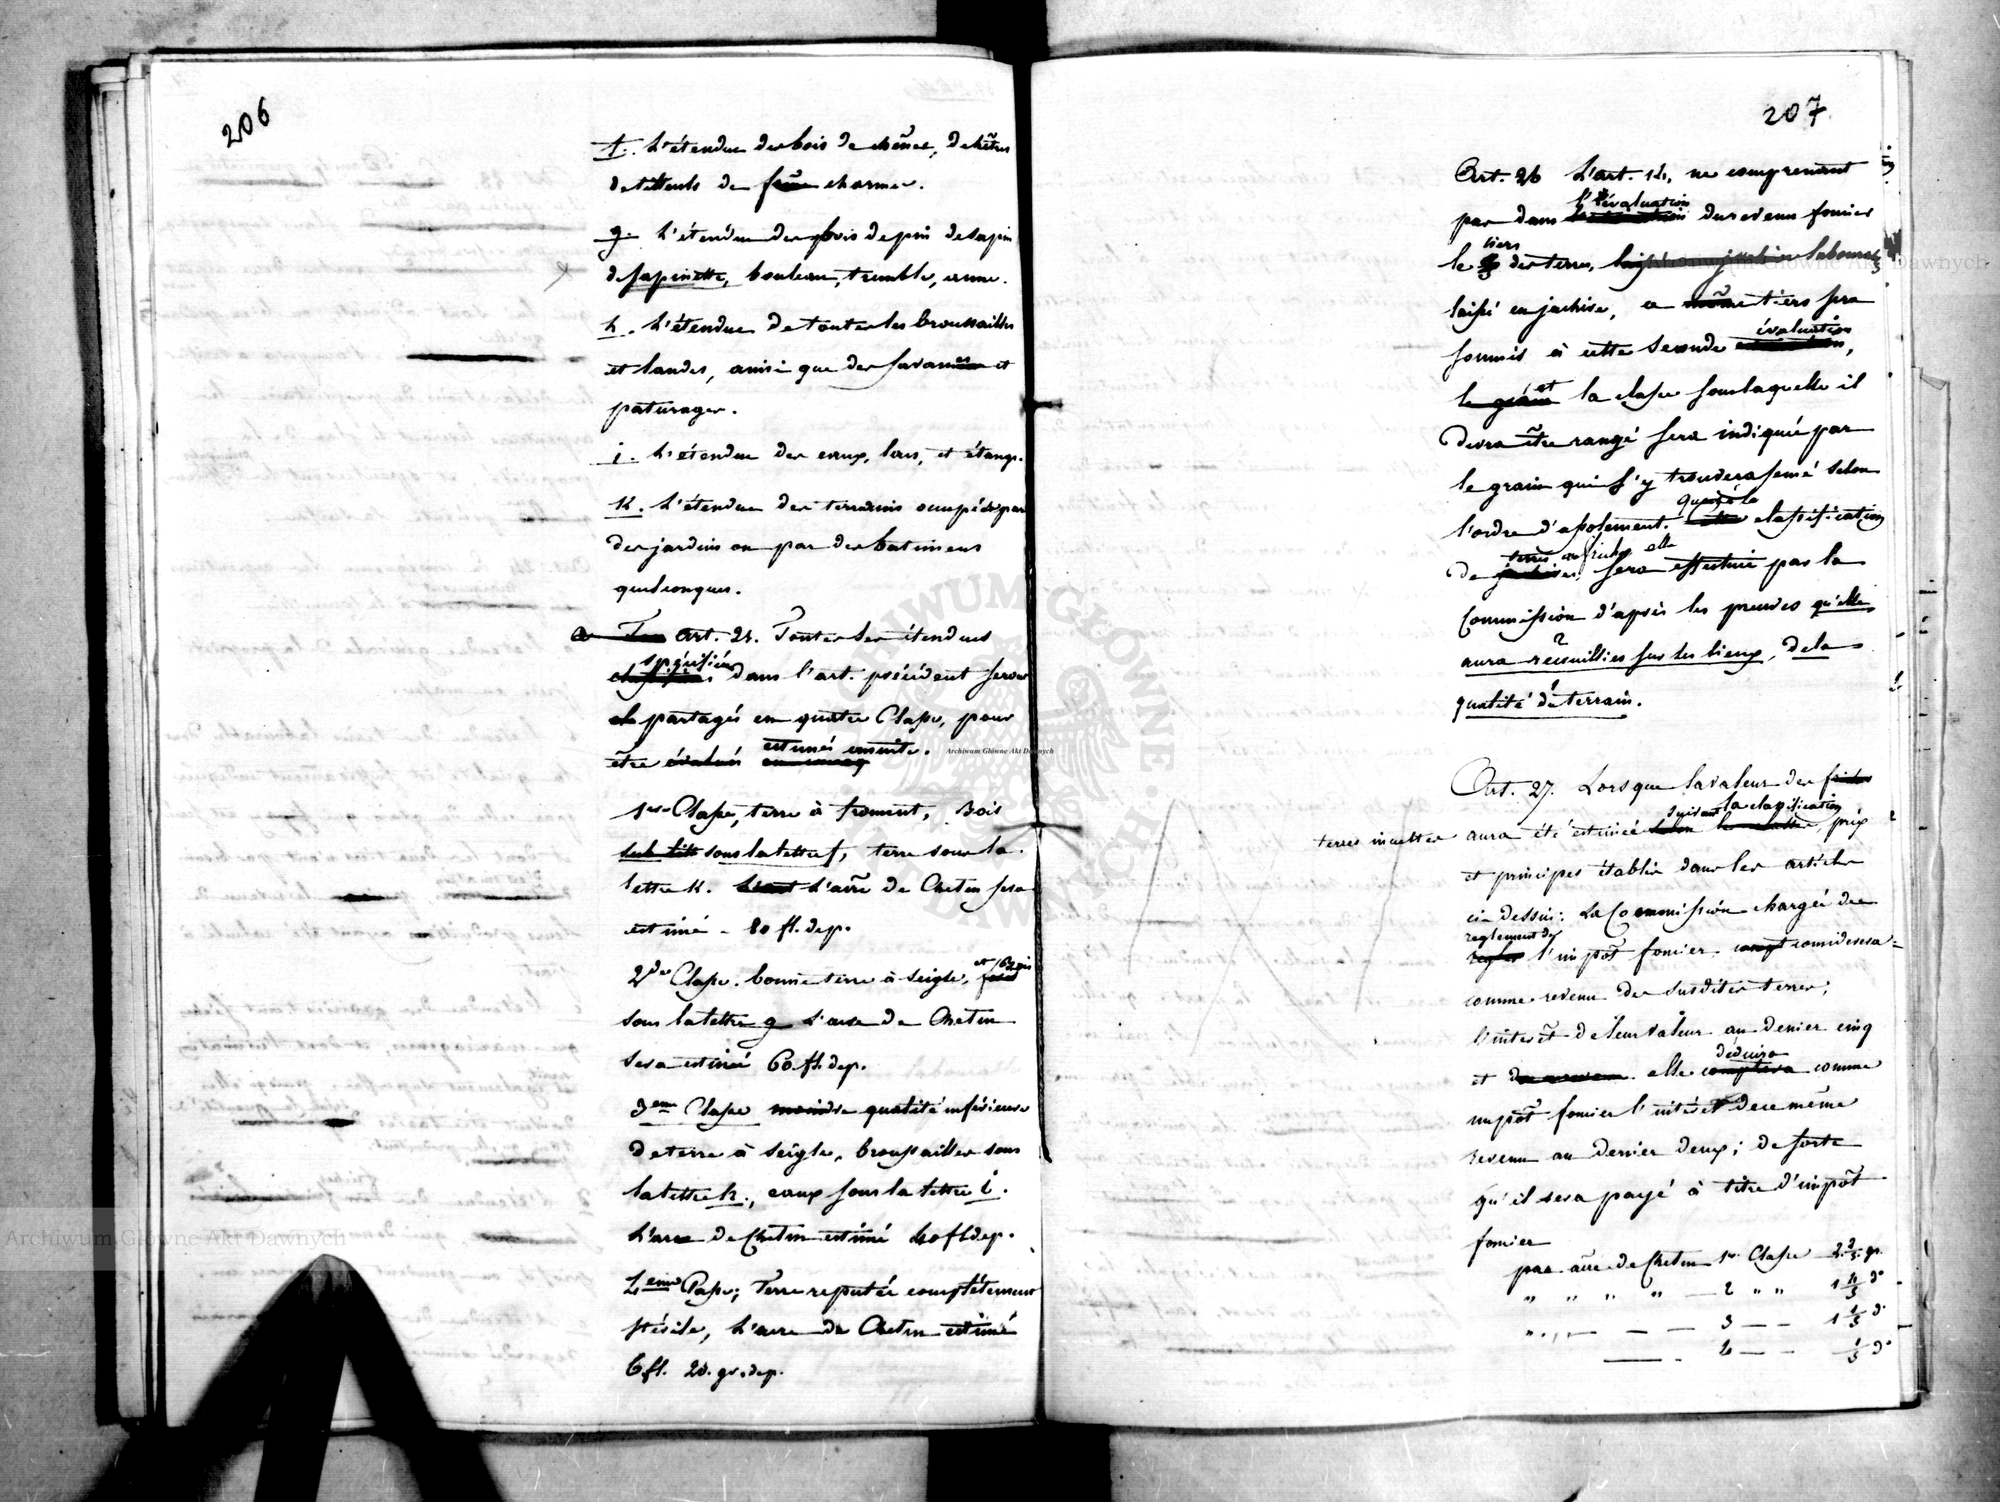 206
f. L'étendue des bois de chênes, de hêtres
de tilleuls de charmes.
g. L'étendue des bois de pin de sapin
de sapinette, bouleau, tremble, aune.
h. L'étendue de toutes les broussailles
et landes, ainsi que des savannes et
paturages.
i. L'étendue des eaux, lacs, et étangs.
k. L'étendue des terrains occupés par
des jardins ou par des batimens
quelconques.
Art. 25. Toutes les étendues
spécifiées dans l'art. précédent seront
partagés en quatre Classes, pour
être évalués estimés ensuite.
1ere Classe, terre à froment, Bois
sous la lettre f, terre sous la
lettre k. L'aire de Chetm sera
estimé - 80 fl. dep.
2de Classe. bonne terre à seigle, et bois
sous la lettre g L'aire de Chetm
sera estimé 60 fl. dep.
3eme Classe moindre qualité inférieure
de terre à seigle, broussailles sous
la lettre h., eaux sous la lettre i.
L'aire de Chetm estimé 40 fl dep.
4eme Classe; Terre reputée complétement
stérile, L'aire de Chetm estimé
6 fl. 20. gr. dep.
207
Art. 26 L'art. 14, ne comprenant
pas dans l'évaluation du revenu foncier
le tiers des terres, labourées
laissé en jachère, ce même tiers sera
soumis à cette seconde évaluation,
et la classe sous laquelle il
devra être rangé sera indiquée par
le grain qui s'y trouvera semé selon
l'ordre d'assolement. Quant à la classification
de terres en friche elle sera effectuée par la
Commission d'après les preuves qu'elle
aura recueillies sur les lieux, de la
qualité du terrain.
Art. 27. Lorsque la valeur des
terres incultes aura été estimée suivant la classification, prix
et principes établis dans les articles
ci-dessus: La Commission chargée du
reglement de l'impôt foncier considerera
comme revenu des susdites terres;
l'interêt de leur valeur au denier cinq
et elle déduira comme
impôt foncier l'intérêt de ce même
revenu au denier deux; de sorte
qu'il sera payé à titre d'impôt
foncier
par aire de Chetm 1re Classe 2 2/3 gr.
" " " " — 2 " " 1 4/5 do
" . , , — — — 3 — — 1 1/5 do
——— - 4 — - 1/5 do
Archiwum Główne Akt Dawnych